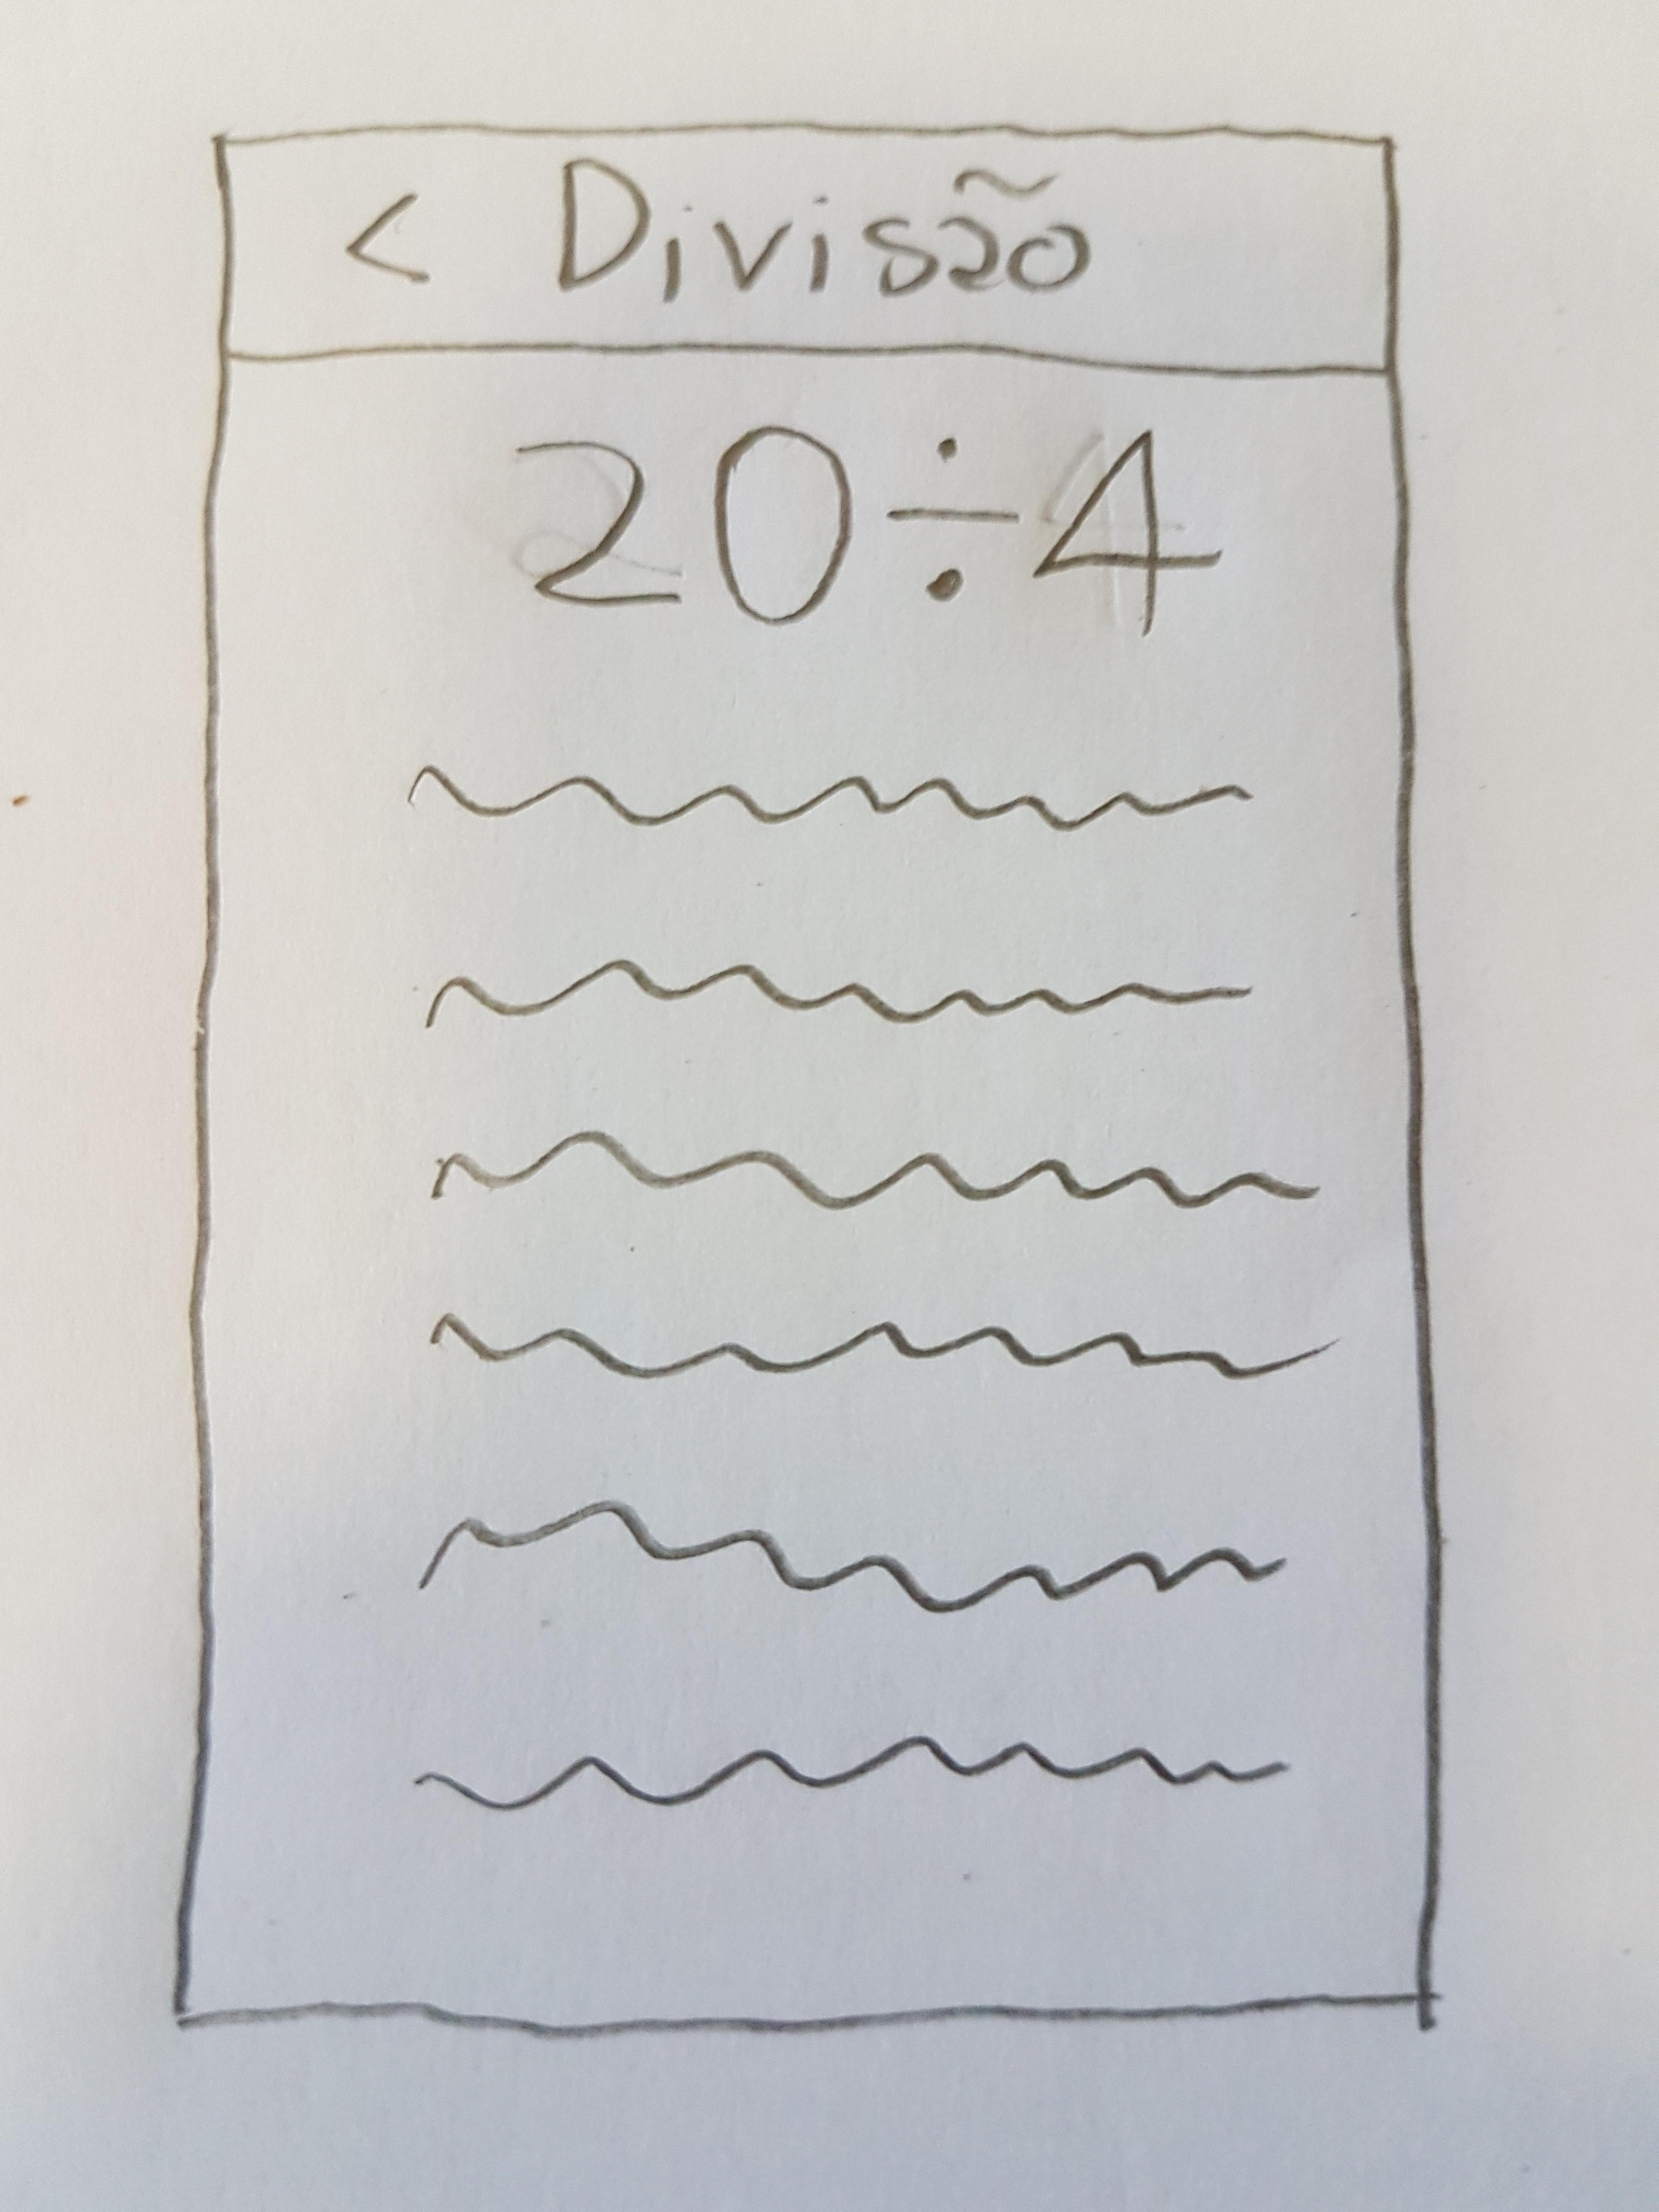 < Divisão
20÷4